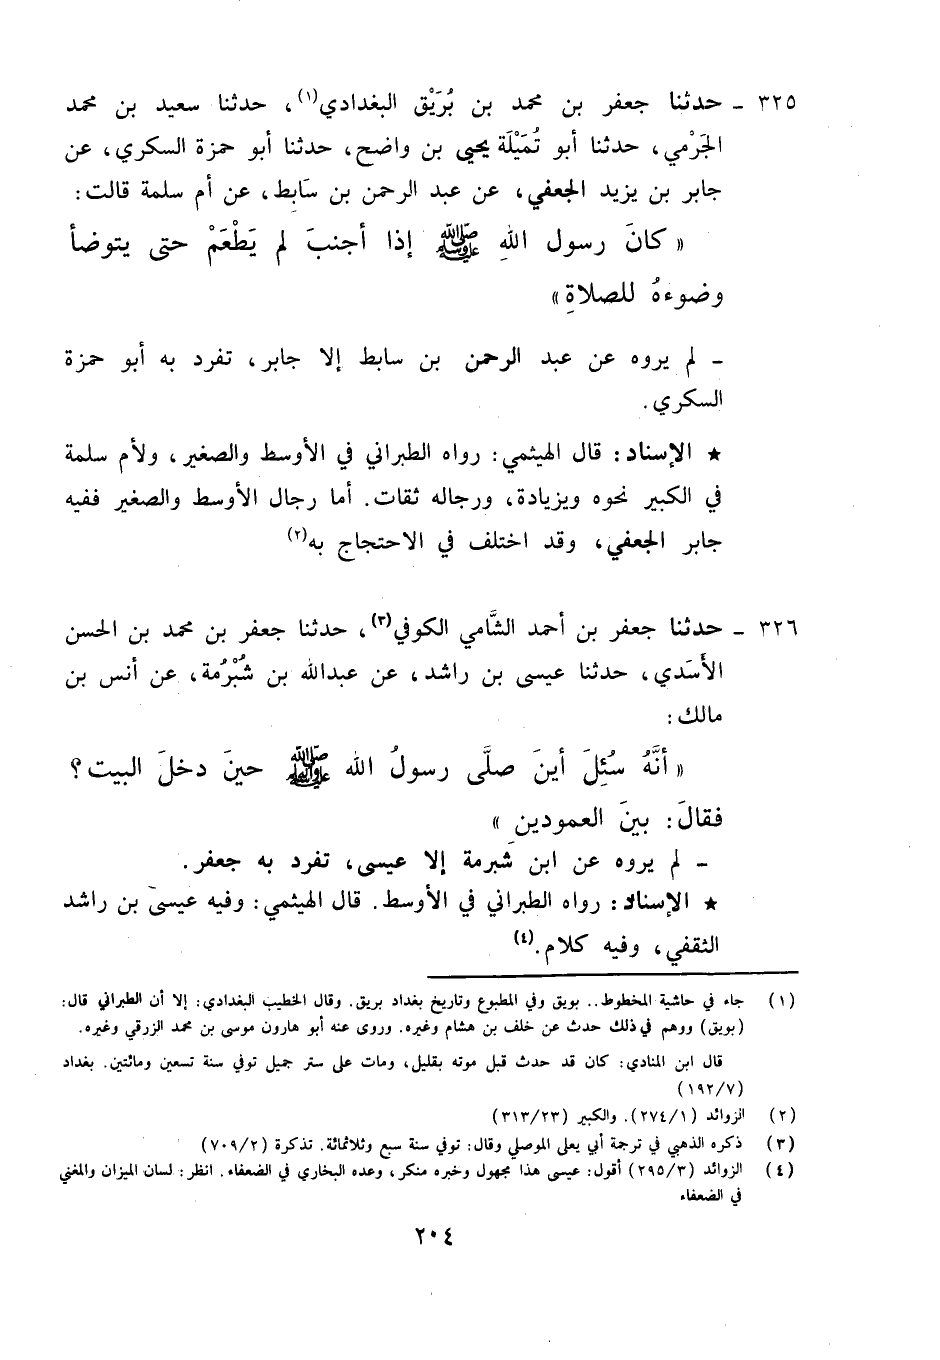 ٣٢٥ - حدثنا جعفر بن محمد بن بُرَيْق البغدادي(١)، حدثنا سعيد بن محمد
الجَرْمي، حدثنا أبو تُمَيْلَة يحيى بن واضح، حدثنا أبو حمزة السكري، عن
جابر بن يزيد الجعفي، عن عبد الرحمن بن سَابط، عن أم سلمة قالت:
« كانَ رسول اللهِ ﷺ إذا أجنبَ لم يَطْعَمْ حتى يتوضأ
وضوءهُ للصلاةِ »
- لم يروه عن عبد الرحمن بن سابط إلا جابر، تفرد به أبو حمزة
السكري.
★ الإسناد: قال الهيثمي: رواه الطبراني في الأوسط والصغير، ولأم سلمة
في الكبير نحوه ويزيادة، ورجاله ثقات. أما رجال الأوسط والصغير ففيه
جابر الجعفي، وقد اختلف في الاحتجاج به(٢)
٣٢٦ - حدثنا جعفر بن أحمد الشَّامي الكوفي(٣)، حدثنا جعفر بن محمد بن الحسن
الأَسَدي، حدثنا عيسى بن راشد، عن عبدالله بن شُبْرُمة، عن أنس بن
مالك:
« أنَّهُ سُئِلَ أينَ صلَّى رسولُ الله ﷺ حينَ دخلَ البيت؟
فقالَ: بينَ العمودين »
- لم يروه عن ابن شبرمة إلا عيسى، تفرد به جعفر.
★ الإسناد: رواه الطبراني في الأوسط. قال الهيثمي: وفيه عيسى بن راشد
الثقفي، وفيه كلام.(٤)
(١) جاء في حاشية المخطوط.. بويق وفي المطبوع وتاريخ بغداد بريق. وقال الخطيب البغدادي: إلا أن الطبراني قال:
(بويق) ووهم في ذلك حدث عن خلف بن هشام وغيره. وروى عنه أبو هارون موسى بن محمد الزرقي وغيره.
قال ابن المنادي: كان قد حدث قبل موته بقليل، ومات على ستر جميل توفي سنة تسعين ومائتين. بغداد
(١٩٢/٧)
(٢) الزوائد (٢٧٤/١). والكبير (٣١٣/٢٣)
(٣) ذكره الذهبي في ترجمة أبي يعلى الموصلي وقال: توفي سنة سبع وثلاثمائة. تذكرة (٧٠٩/٢)
(٤) الزوائد (٢٩٥/٣) أقول: عيسى هذا مجهول وخبره منكر، وعده البخاري في الضعفاء. انظر: لسان الميزان والمغني
في الضعفاء
٢٠٤